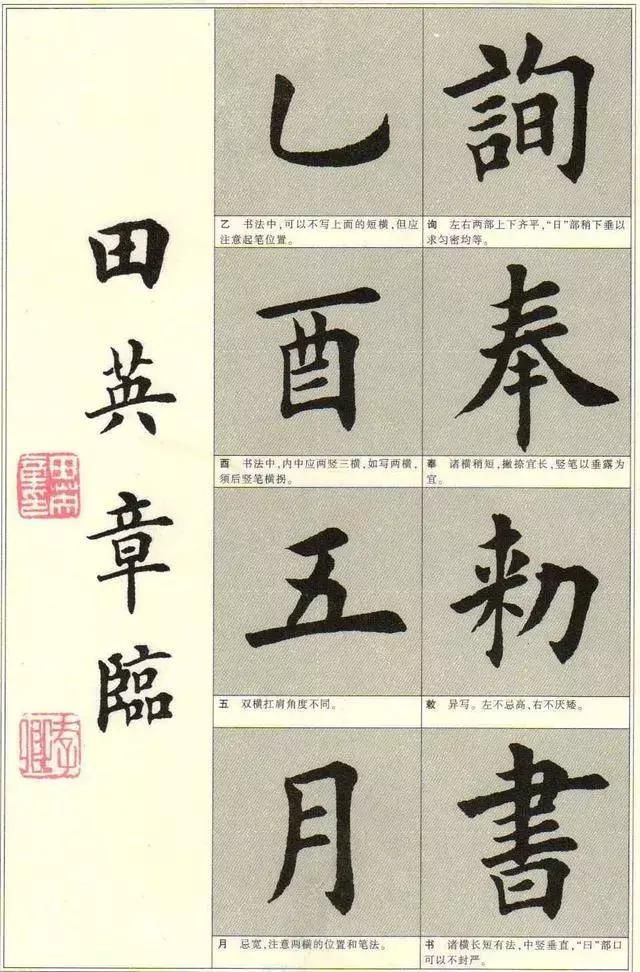 詢
询 左右两部上下齐平，“日”部稍下垂以
求匀密均等。
奉
奉 诸横稍短，撇捺宜长，竖笔以垂露为
宜。
勑
敕 异写。左不忌高，右不厌矮。
書
书 诸横长短有法，中竖垂直，“曰”部口
可以不封严。
乙
乙 书法中，可以不写上面的短横，但应
注意起笔位置。
酉
酉 书法中，内中应两竖三横，如写两横，
须后竖笔横拐。
五
五 双横扛肩角度不同。
月
月 忌宽，注意两横的位置和笔法。
田英章臨